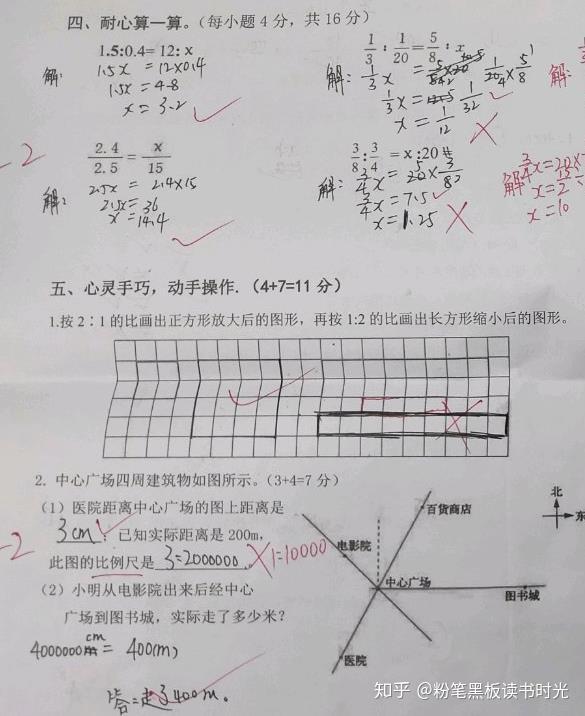 四、耐心算一算。（每小题 4 分，共 16 分）
1.5:0.4= 12: x
解:
1.5x = 12×0.4
1.5x = 4.8
x = 3.2
1/3 : 1/20 = 5/8 : x
解:
1/3 x = 1/20 × 5/8
1/3 x = 1/32
x = 1/12
-2
2.4/2.5 = x/15
解:
2.5x = 2.4×15
2.5x = 36
x = 14.4
3/8 : 3/4 = x :20
解:
3/4 x = 20 × 3/8
3/4 x = 7.5
x = 1.25
解
x = 10
五、心灵手巧，动手操作.（4+7=11 分）
1.按 2∶1 的比画出正方形放大后的图形，再按 1:2 的比画出长方形缩小后的图形。
2. 中心广场四周建筑物如图所示。（3+4=7 分）
（1）医院距离中心广场的图上距离是
3cm. 已知实际距离是 200m,
-2
此图的比例尺是 3:2000000. 1:10000
（2）小明从电影院出来后经中心
广场到图书城，实际走了多少米?
4000000cm = 400(m)
答:走了400m。
北
东
百货商店
电影院
中心广场
图书城
医院
知乎 @粉笔黑板读书时光